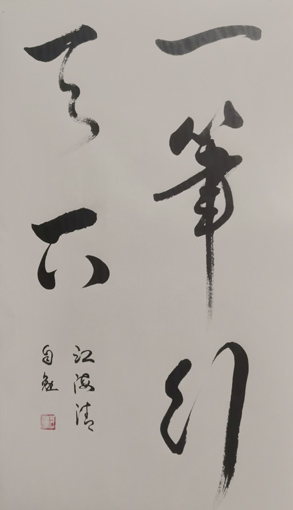 一筆行
天下
江海清
自勉